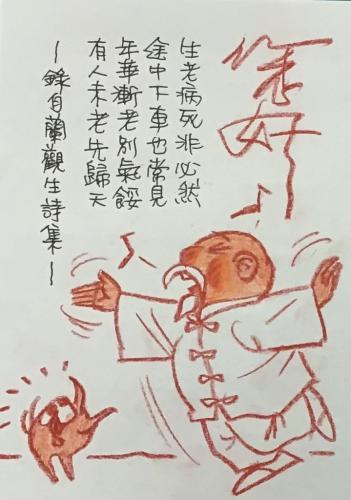 好
生老病死非必然
途中下車也常見
年華漸老別氣餒
有人未老先歸天
～錄自蘭觀生詩集～